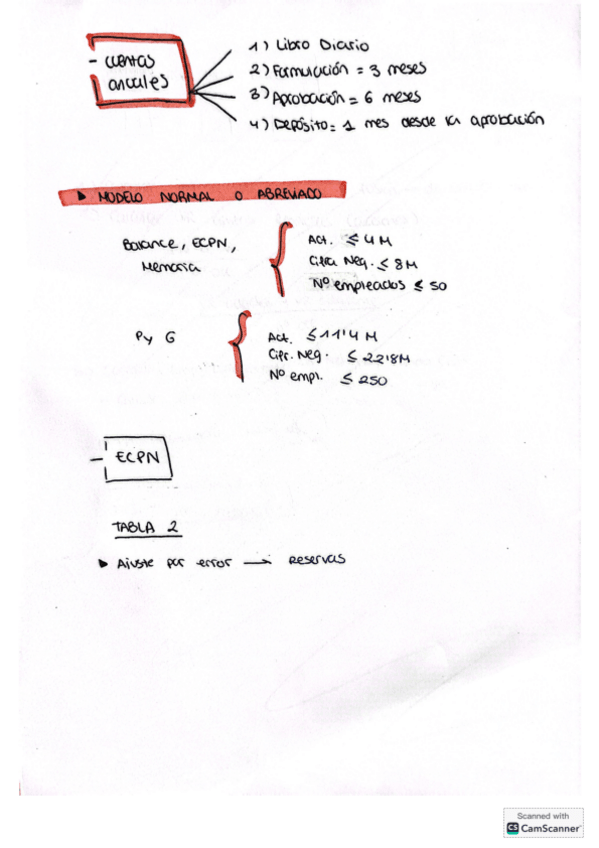 - cuentas anuales
1) Libro Diario
2) Formulación = 3 meses
3) Aprobación = 6 meses
4) Depósito = 1 mes desde la aprobación
▶ MODELO NORMAL O ABREVIADO
Balance, ECPN,
Memoria
Act. ≤ 4 M
Cifra Neg. ≤ 8 M
Nº empleados ≤ 50
P y G
Act. ≤ 11'4 M
Cifr. Neg. ≤ 22'8 M
Nº empl. ≤ 250
- ECPN
TABLA 2
▶ Ajuste por error → Reservas
Scanned with
CS CamScanner